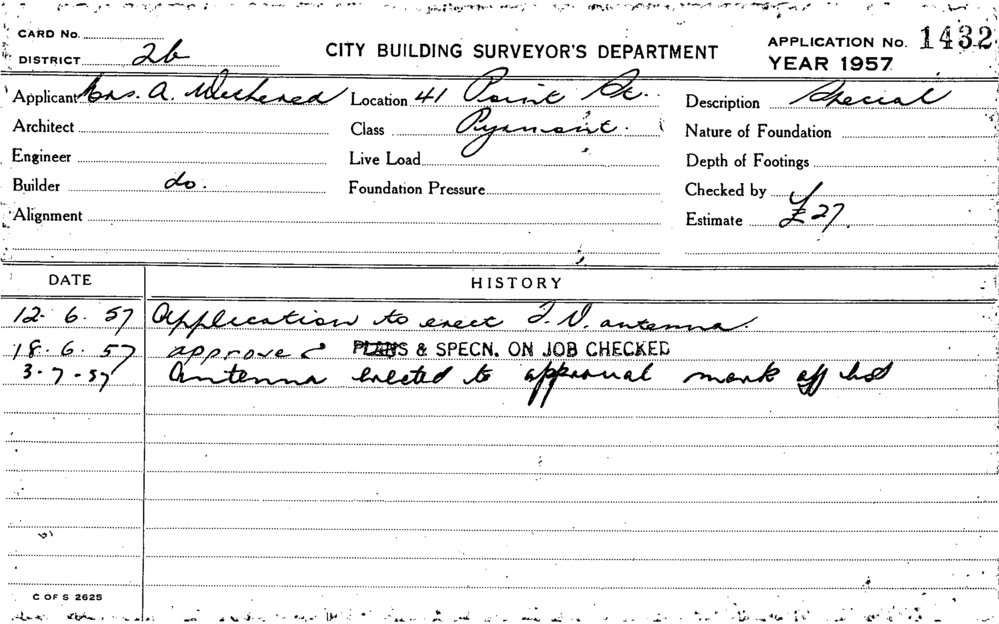 CARD No.
DISTRICT 2b
CITY BUILDING SURVEYOR'S DEPARTMENT
APPLICATION No. 1432
YEAR 1957
Applicant Mrs. A. Wethered Location 41 Point St. Description Special
Architect Class Pyrmont. Nature of Foundation
Engineer Live Load Depth of Footings
Builder do. Foundation Pressure Checked by
Alignment Estimate £27
DATE HISTORY
12. 6. 57 Application to erect T.V. antenna.
18. 6. 57 approved PLANS & SPECN. ON JOB CHECKED
3-7-57 Antenna erected to approval mark off list
C OF S 2625